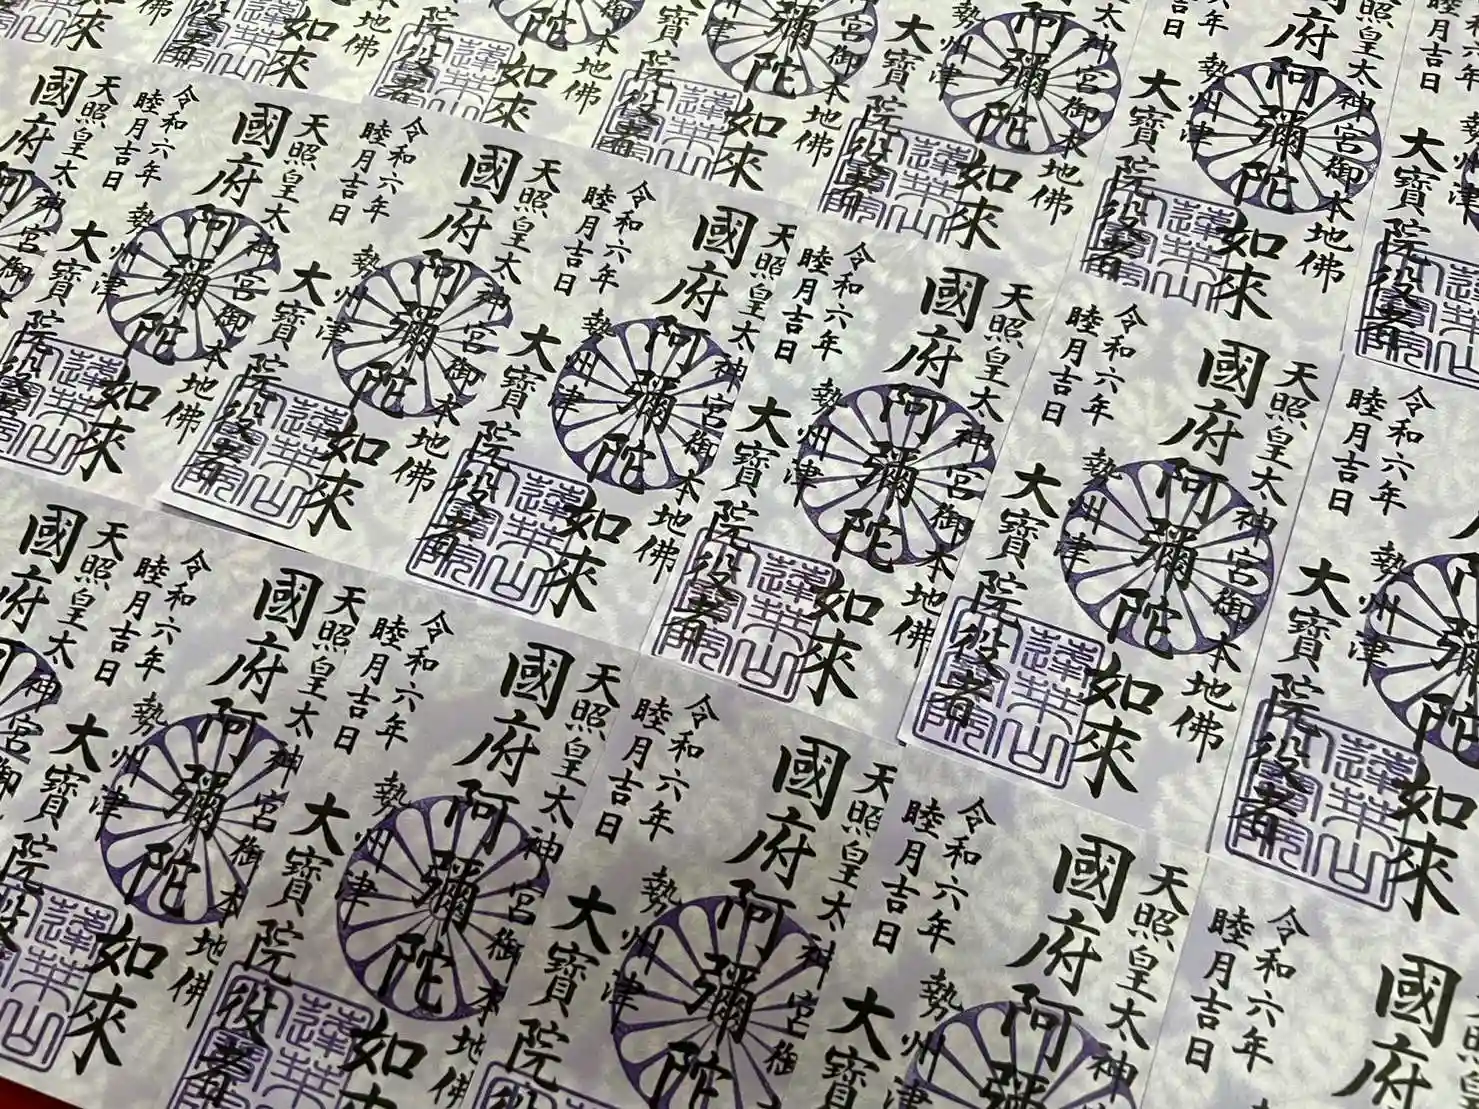 天照皇太神宮御本地佛
國府阿彌陀如來
令和六年
睦月吉日
勢州津
大寶院役者
蓮華山